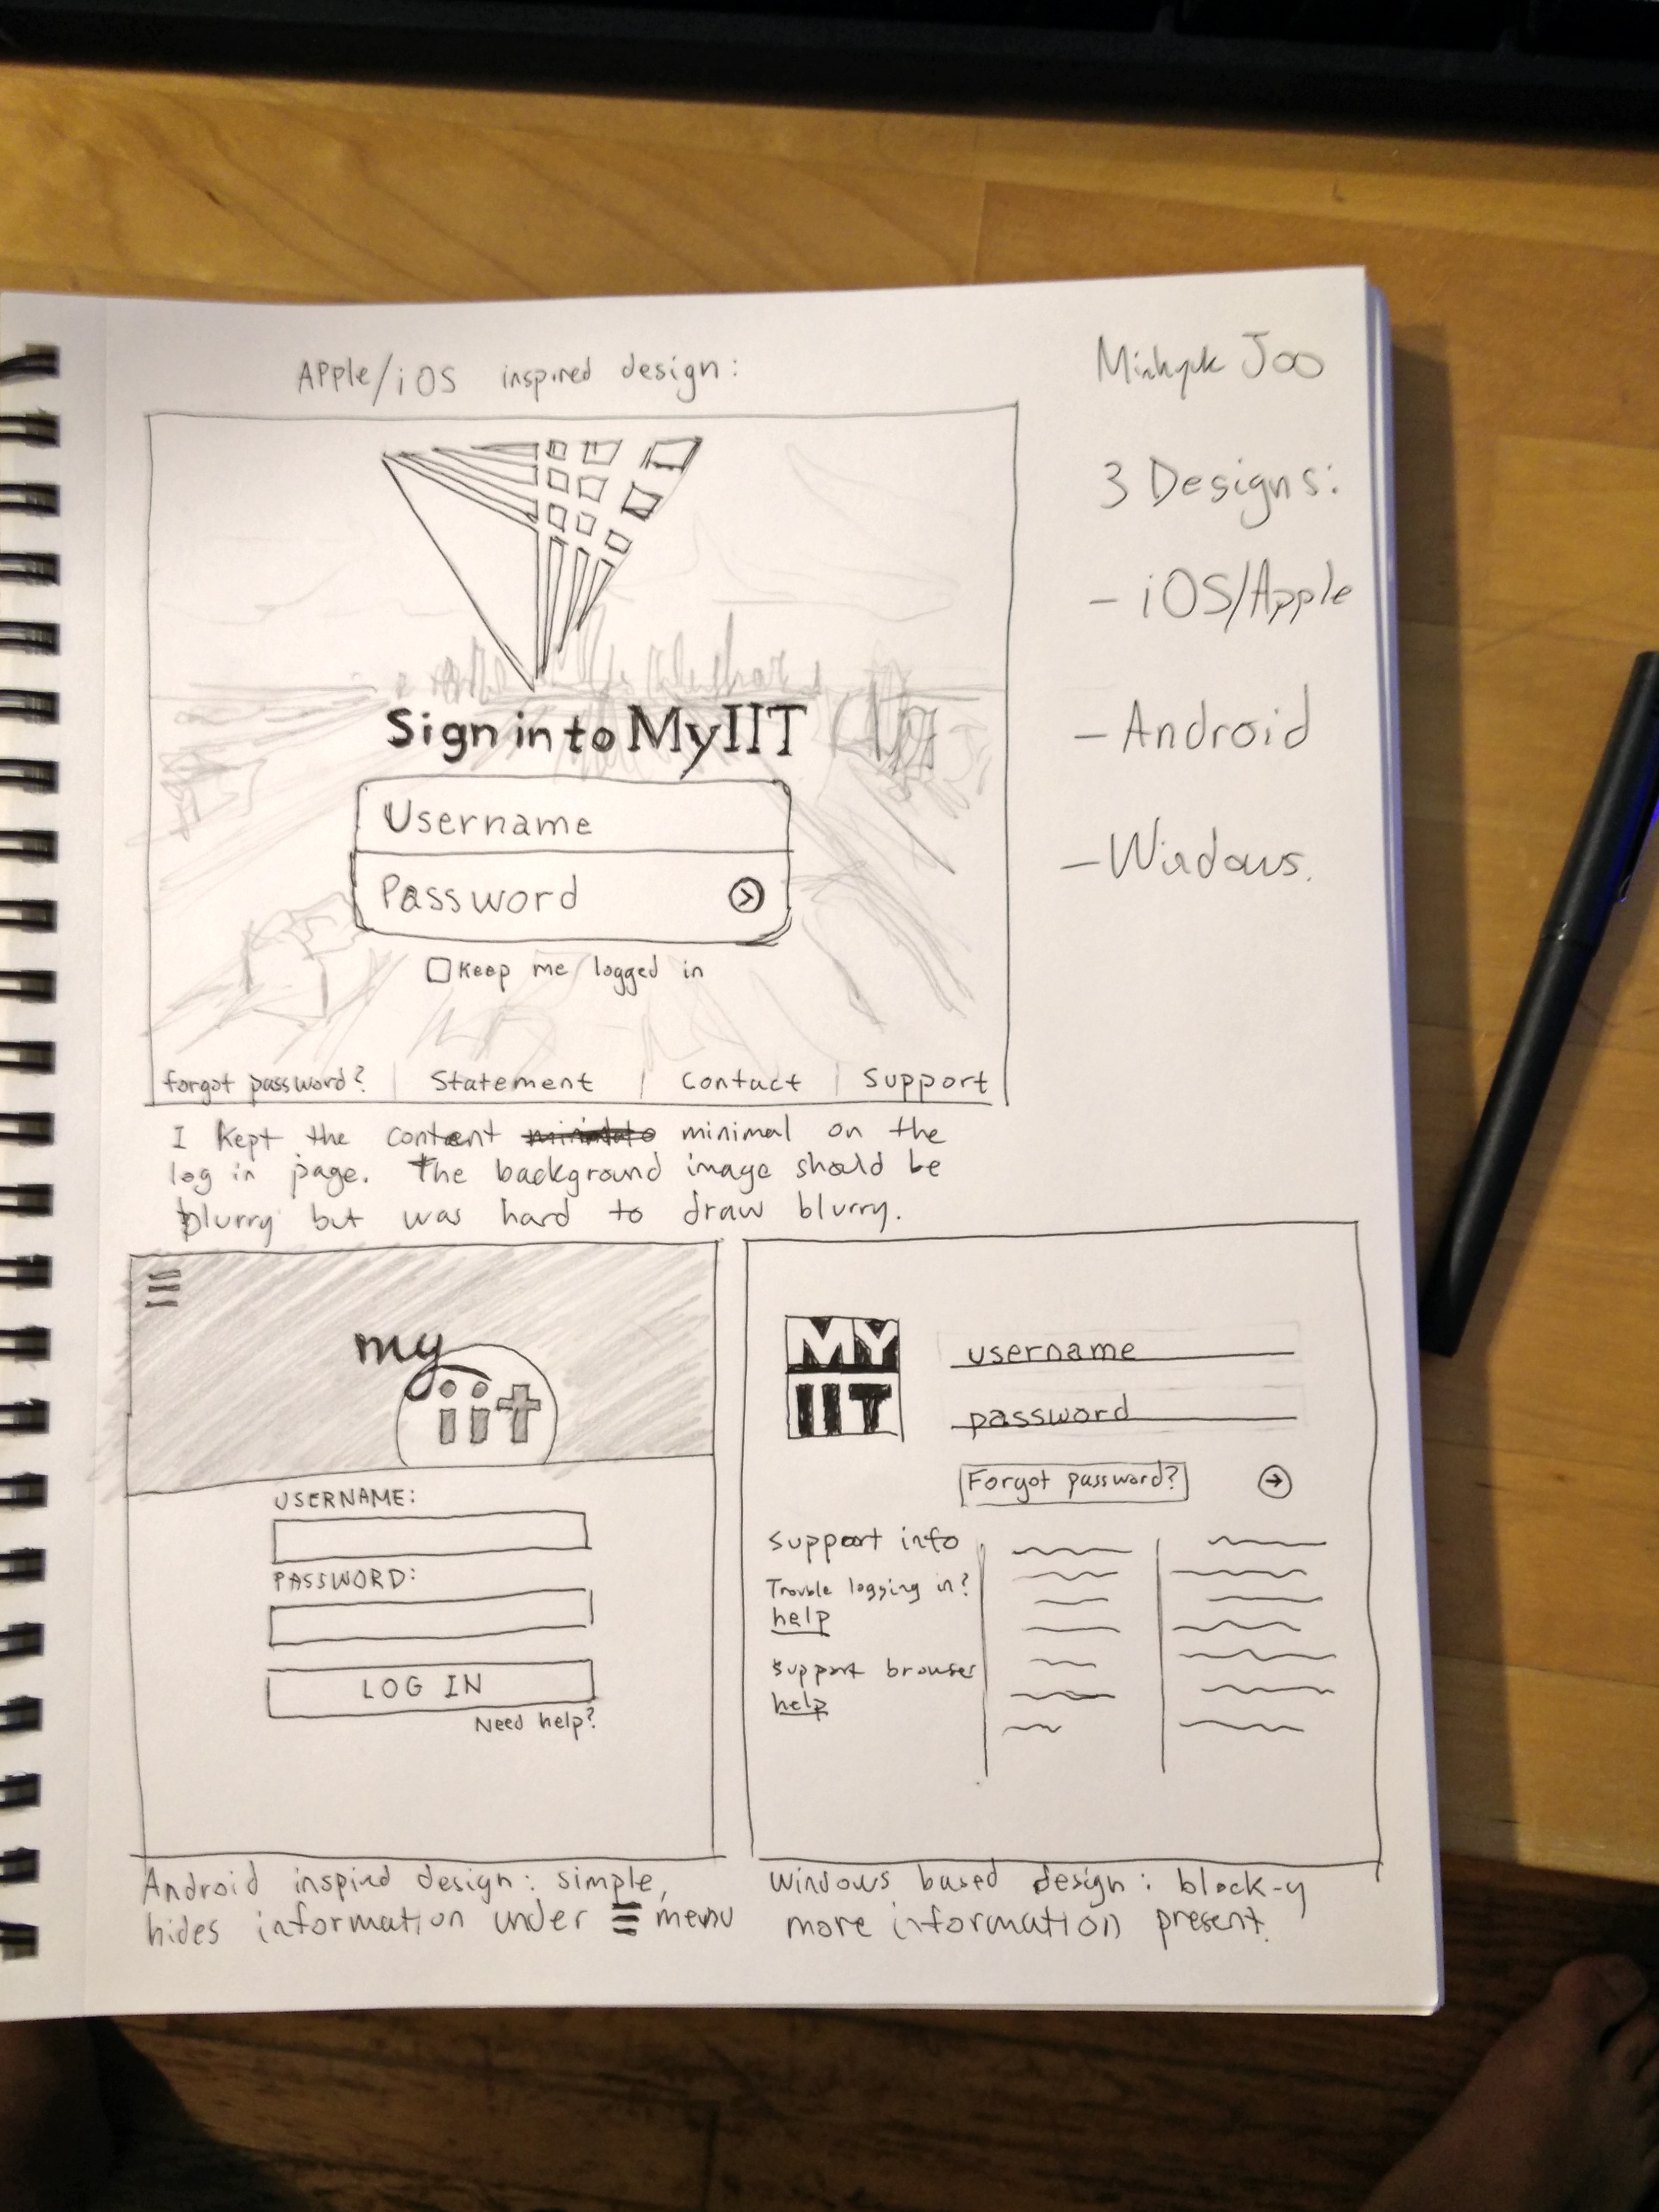 APPle/iOS inspired design:
Minhyuk Joo
3 Designs:
- iOS/Apple
- Android
- Windows.
Sign in to MyIIT
Username
Password
Keep me logged in
forgot password? | Statement | Contact | Support
I kept the content minimal on the
log in page. The background image should be
blurry but was hard to draw blurry.
my
iit
USERNAME:
PASSWORD:
LOG IN
Need help?
Android inspired design: simple,
hides information under ☰ menu
MY
IIT
username
password
Forgot password?
Support info
Trouble logging in?
help
Support browser
help
Windows based design: block-y
more information present.